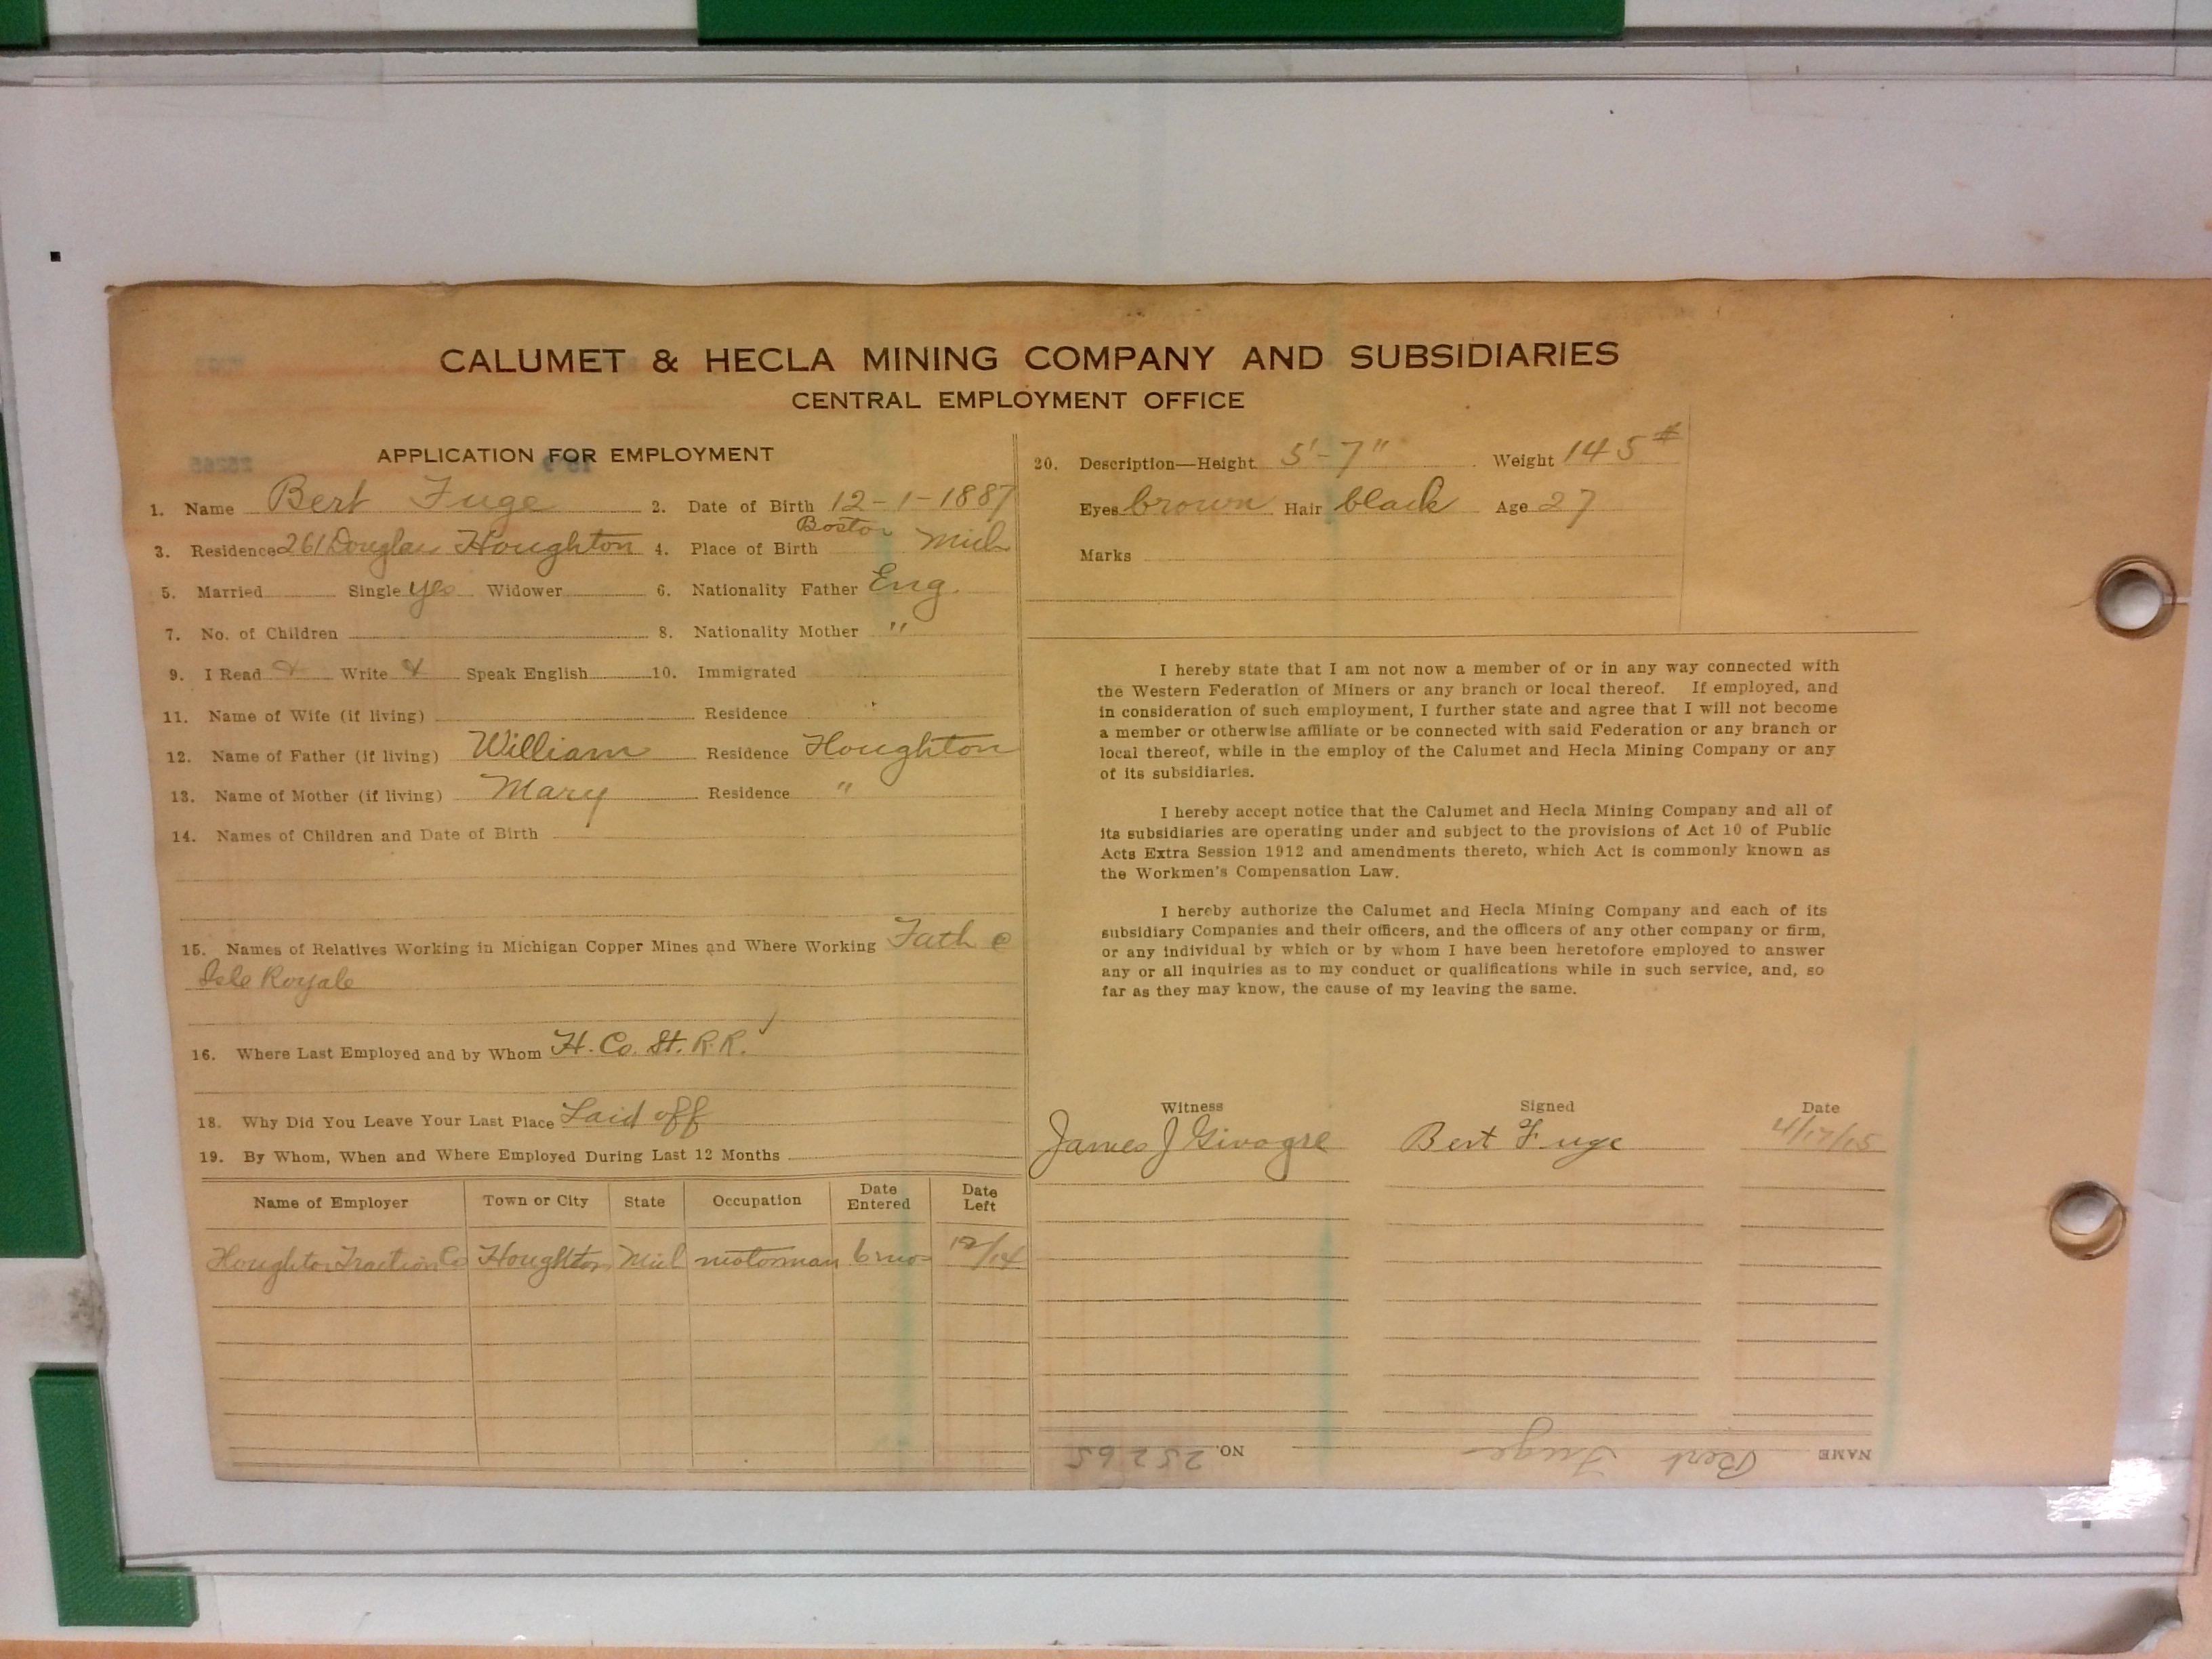 CALUMET & HECLA MINING COMPANY AND SUBSIDIARIES
CENTRAL EMPLOYMENT OFFICE
APPLICATION FOR EMPLOYMENT
1. Name Bert Fuge 2. Date of Birth 12-1-1887
3. Residence 261 Douglas Houghton 4. Place of Birth Boston Mich
5. Married Single yes Widower 6. Nationality Father Eng.
7. No. of Children 8. Nationality Mother "
9. I Read Write Speak English 10. Immigrated
11. Name of Wife (if living) Residence
12. Name of Father (if living) William Residence Houghton
13. Name of Mother (if living) Mary Residence "
14. Names of Children and Date of Birth
15. Names of Relatives Working in Michigan Copper Mines and Where Working Fath @
Isle Royale
16. Where Last Employed and by Whom H. Co. St. R.R.
18. Why Did You Leave Your Last Place Laid off
19. By Whom, When and Where Employed During Last 12 Months
Name of Employer Town or City State Occupation Date Entered Date Left
Houghton Traction Co Houghton Mich motorman 6 mos 12/14
20. Description—Height 5'-7" Weight 145#
Eyes brown Hair black Age 27
Marks
I hereby state that I am not now a member of or in any way connected with
the Western Federation of Miners or any branch or local thereof. If employed, and
in consideration of such employment, I further state and agree that I will not become
a member or otherwise affiliate or be connected with said Federation or any branch or
local thereof, while in the employ of the Calumet and Hecla Mining Company or any
of its subsidiaries.
I hereby accept notice that the Calumet and Hecla Mining Company and all of
its subsidiaries are operating under and subject to the provisions of Act 10 of Public
Acts Extra Session 1912 and amendments thereto, which Act is commonly known as
the Workmen's Compensation Law.
I hereby authorize the Calumet and Hecla Mining Company and each of its
subsidiary Companies and their officers, and the officers of any other company or firm,
or any individual by which or by whom I have been heretofore employed to answer
any or all inquiries as to my conduct or qualifications while in such service, and, so
far as they may know, the cause of my leaving the same.
Witness Signed Date
James J Bert Fuge 4/17/15
NAME Bert Fuge NO. 25265